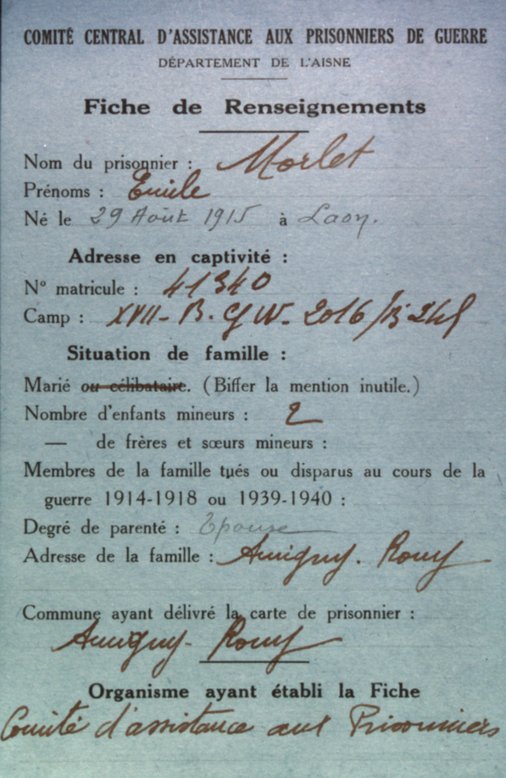 COMITÉ CENTRAL D'ASSISTANCE AUX PRISONNIERS DE GUERRE
DÉPARTEMENT DE L'AISNE
Fiche de Renseignements
Nom du prisonnier : Morlet
Prénoms : Emile
Né le 29 Août 1915 à Laon.
Adresse en captivité :
N° matricule : 41340
Camp : XVII - B. GW. 2016/
Situation de famille :
Marié ou célibataire. (Biffer la mention inutile.)
Nombre d'enfants mineurs : 2
— de frères et sœurs mineurs :
Membres de la famille tués ou disparus au cours de la
guerre 1914-1918 ou 1939-1940 :
Degré de parenté : Epouse
Adresse de la famille : Amigny. Rouy
Commune ayant délivré la carte de prisonnier :
Amigny - Rouy
Organisme ayant établi la Fiche
Comité d'assistance aux Prisonniers